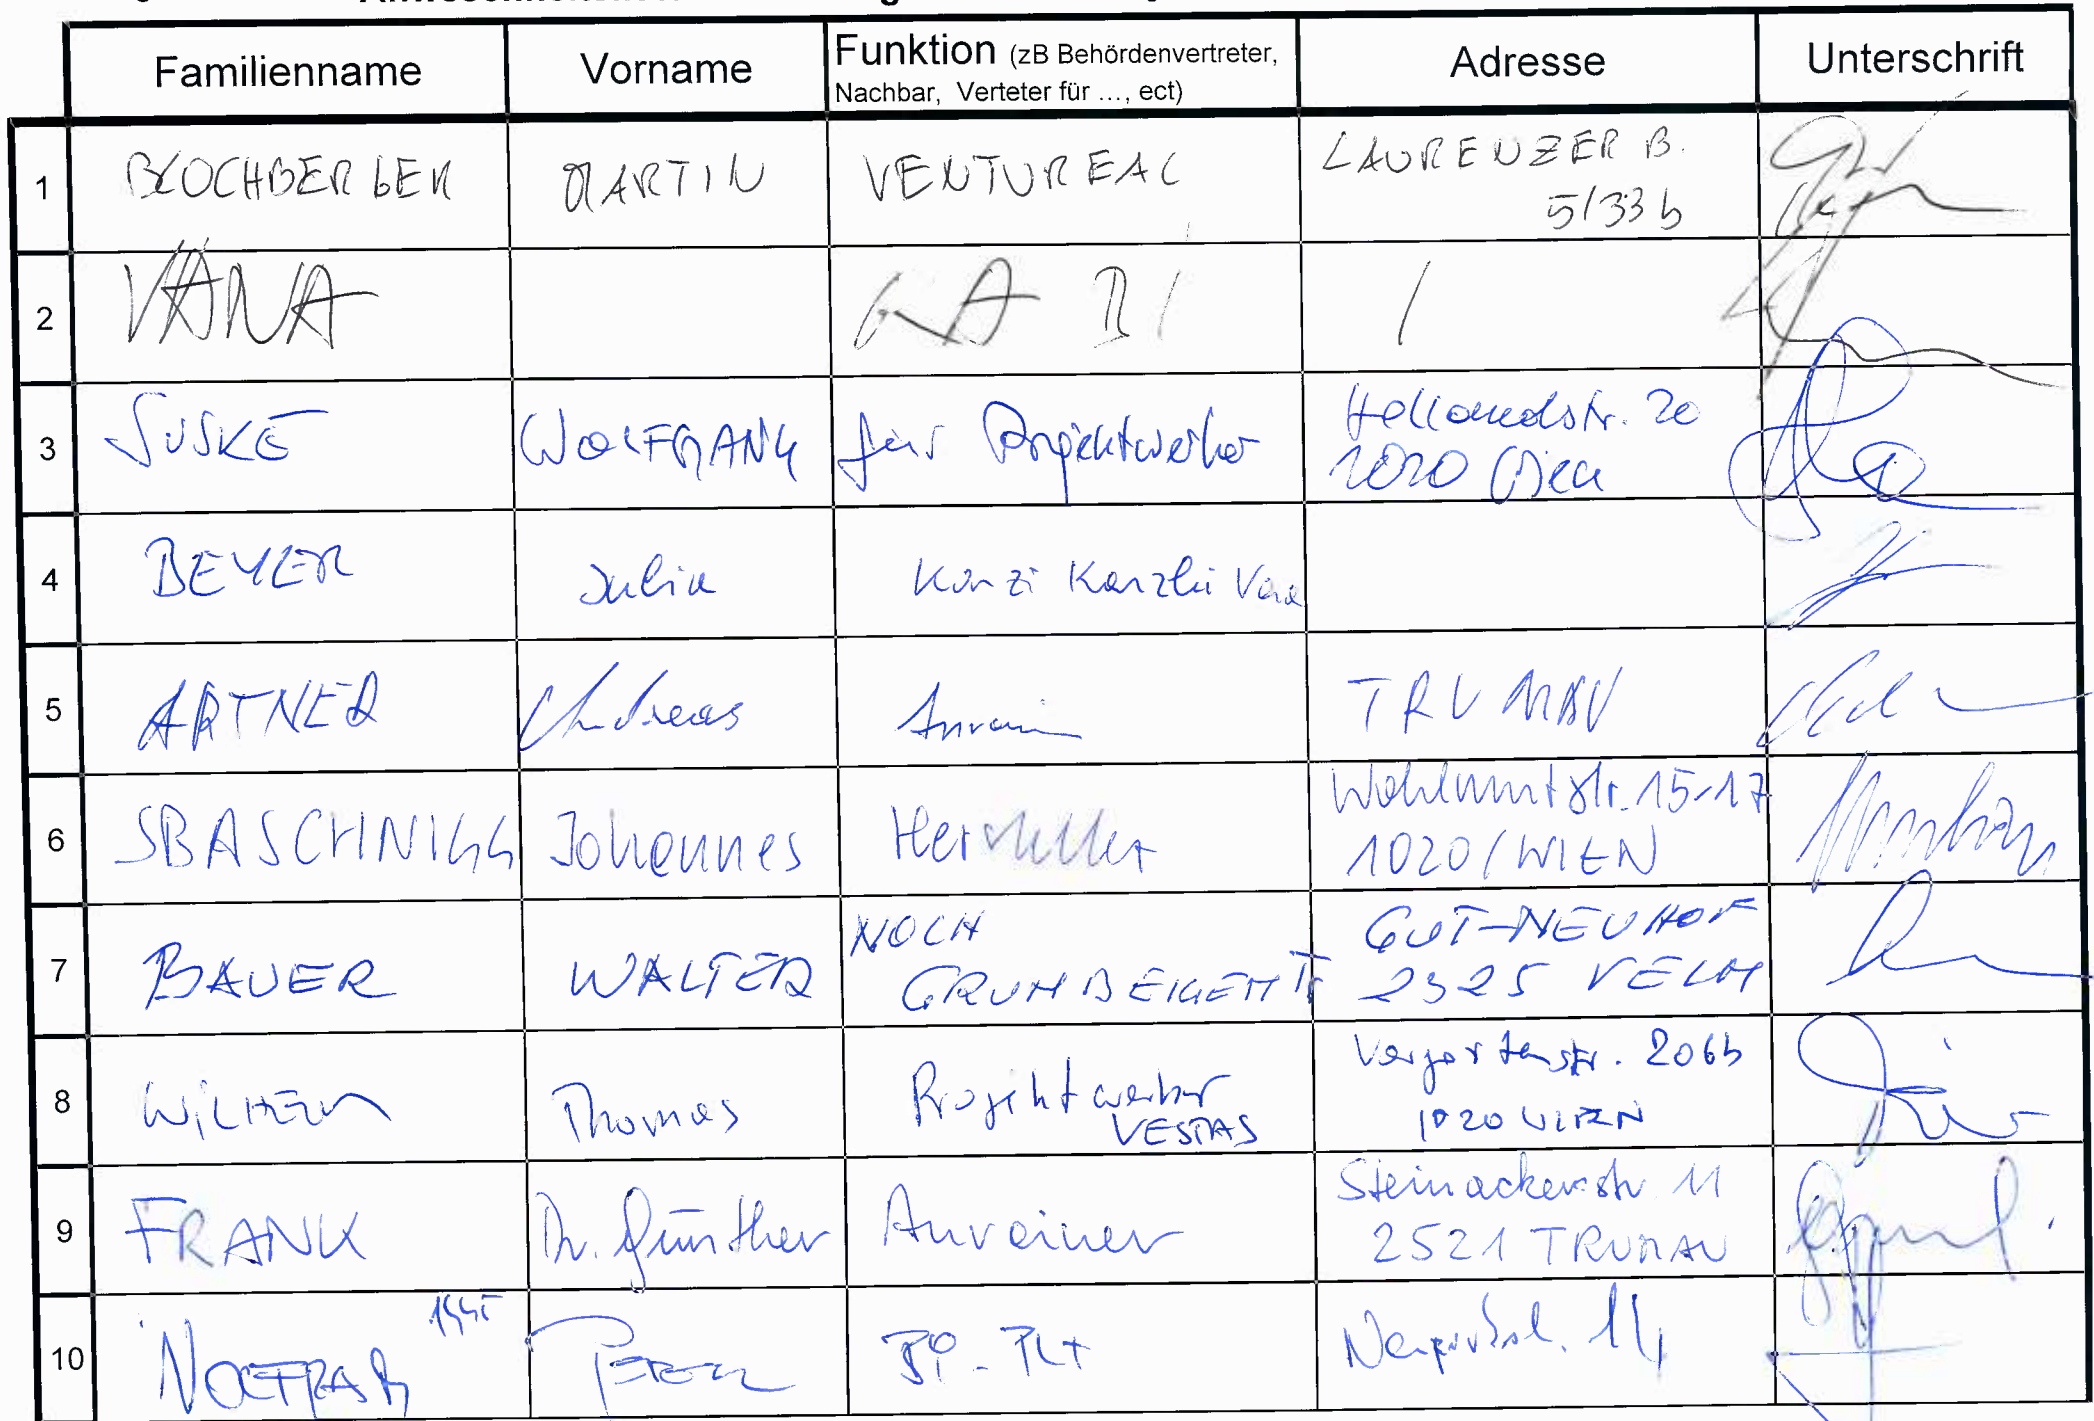 Familienname Vorname Funktion (zB Behördenvertreter, Nachbar, Verteter für ..., ect) Adresse Unterschrift
1 BLOCHBERGER MARTIN VENTUREAL LAURENZER B.
5/33b
2 VANA
3 SUSKE WOLFGANG für Projektwerber Hollandstr. 20
1020 Wien
4 BEYER Julia Kanzlei Vana
5 ARTNER Andreas Anrain TRUMAU
6 SBASCHNIGG Johannes Hersteller 15-17
1020/WIEN
7 BAUER WALTER NOCH GRUNDEIGENT GUT-NEUHOF
2325 VELM
8 WILHELM Thomas Projektwerber VESTAS Vorgartenstr. 206b
1020 WIEN
9 FRANK Dr. Günther Anrainer Steinackerstr 11
2521 TRUMAU
10 PETER